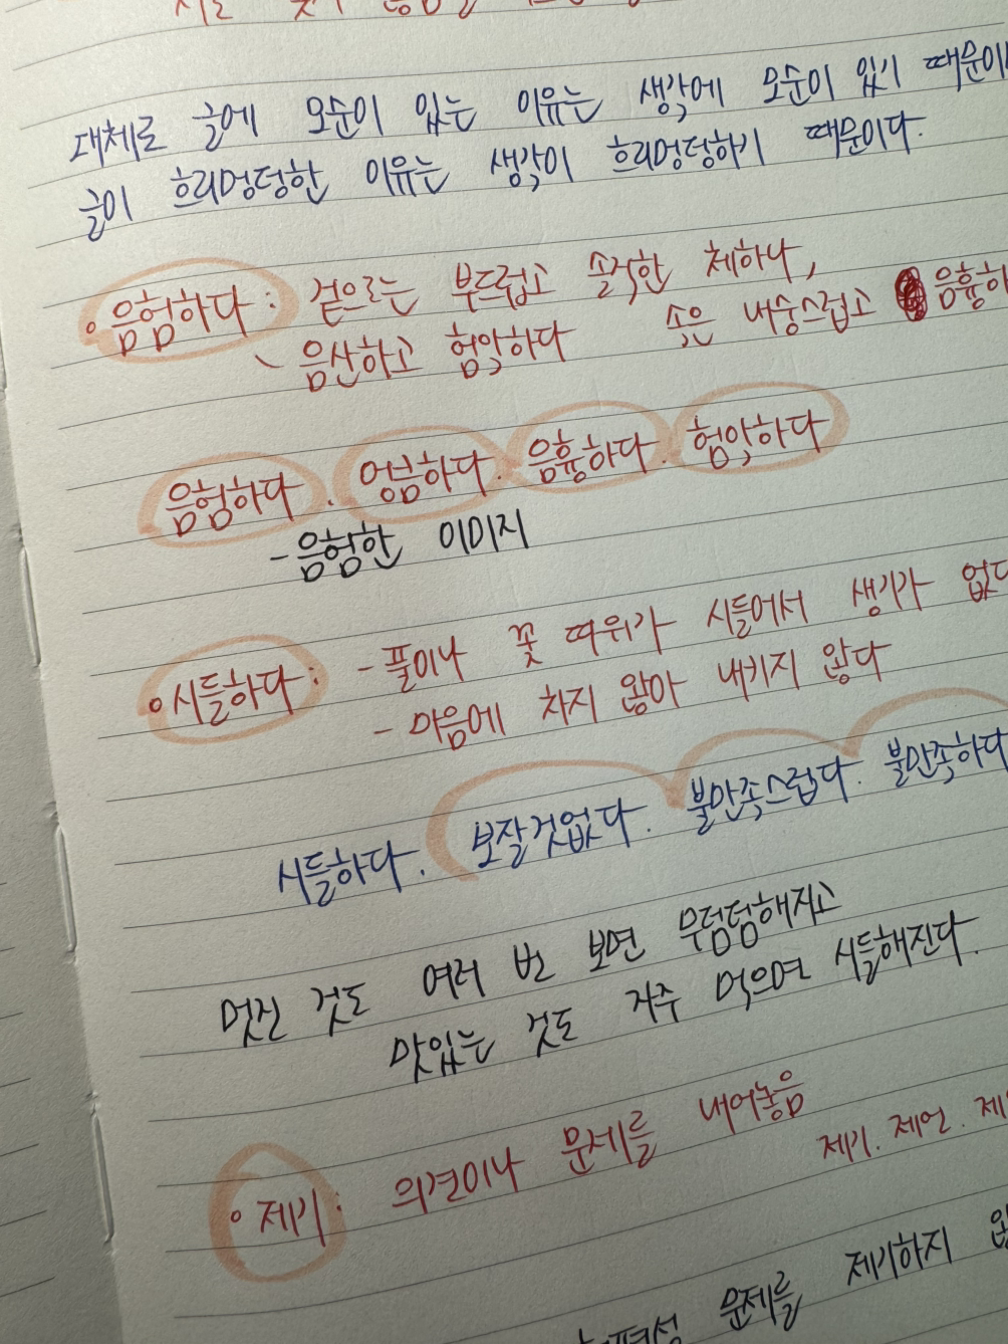 대체로 글에 모순이 있는 이유는 생각에 모순이 있기
글이 흐리멍덩한 이유는 생각이 흐리멍덩하기 때문이다.
음험하다 : 겉으로는 부드럽고 솔직한 체하나,
속은 내숭스럽고
음산하고 험악하다
음험하다. 엉큼하다. 음흉하다. 험악하다
- 음험한 이미지
시들하다 : - 풀이나 꽃 따위가 시들어서 생기가
- 마음에 차지 않아 내키지 않다
시들하다. 보잘것없다. 불만족스럽다. 불만족하다
멋진 것도 여러 번 보면 무덤덤해지고
맛있는 것도 자주 먹으며 시들해진다.
제기 : 의견이나 문제를 내어놓음
제기. 제언.
문제를 제기하지